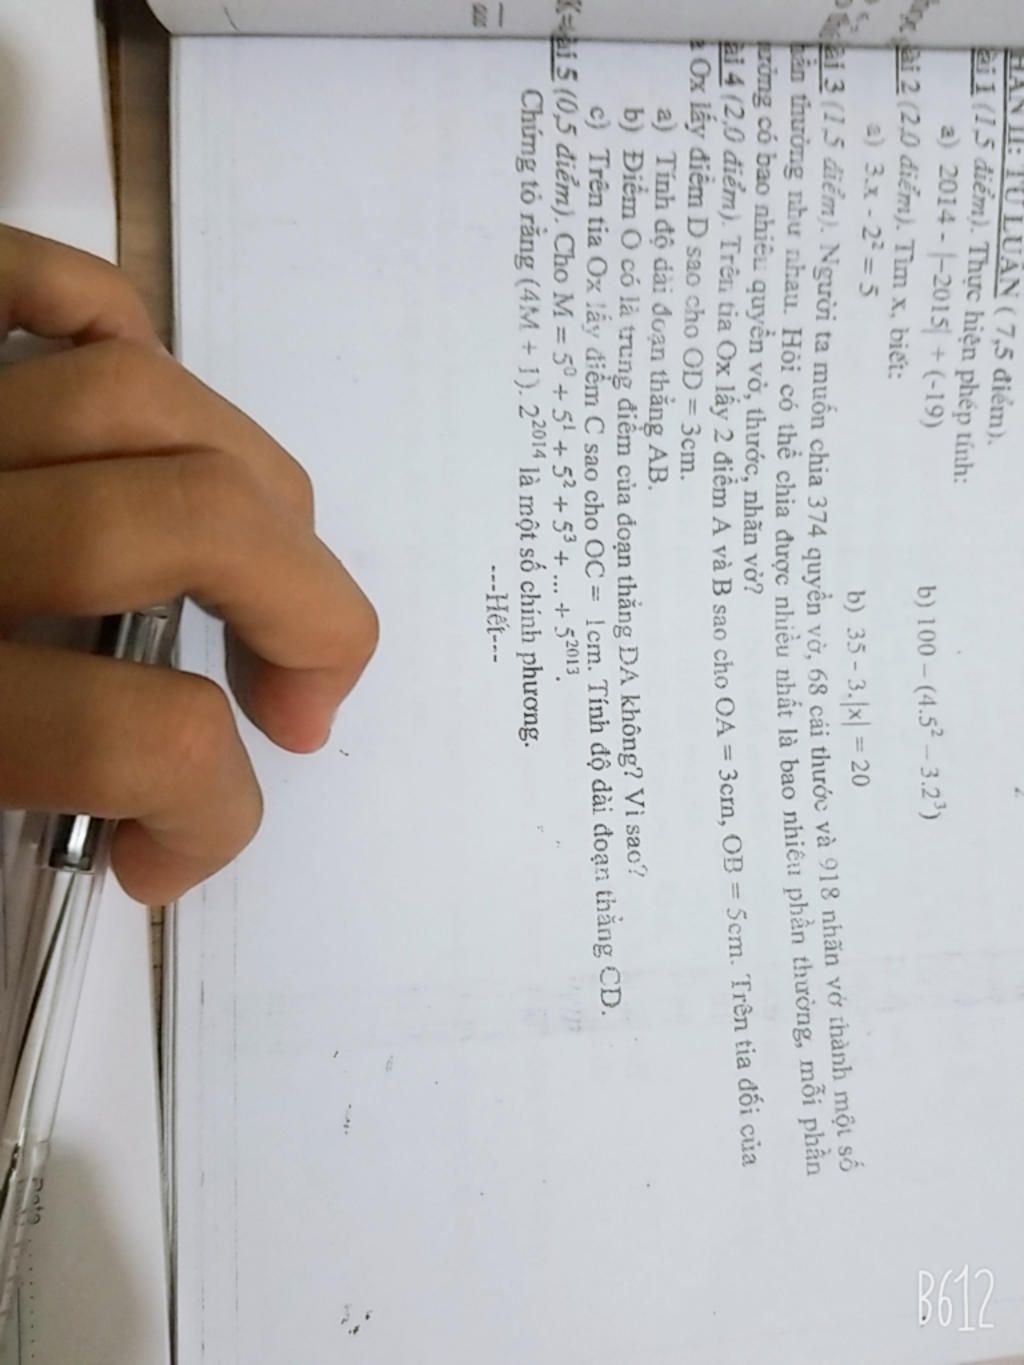 PHẦN II: TỰ LUẬN ( 7,5 điểm).
ài 1 (1,5 điểm). Thực hiện phép tính:
a) 2014 - |−2015| + (-19) b) 100 – (4.5² – 3.2³)
ài 2 (2,0 điểm). Tìm x, biết:
a) 3.x - 2² = 5 b) 35 - 3.|x| = 20
ài 3 (1,5 điểm). Người ta muốn chia 374 quyển vở, 68 cái thước và 918 nhãn vở thành một số
phần thưởng như nhau. Hỏi có thể chia được nhiều nhất là bao nhiêu phần thưởng, mỗi phần
thưởng có bao nhiêu quyển vở, thước, nhãn vở?
ài 4 (2,0 điểm). Trên tia Ox lấy 2 điểm A và B sao cho OA = 3cm, OB = 5cm. Trên tia đối của
Ox lấy điểm D sao cho OD = 3cm.
a) Tính độ dài đoạn thẳng AB.
b) Điểm O có là trung điểm của đoạn thẳng DA không? Vì sao?
c) Trên tia Ox lấy điểm C sao cho OC = 1cm. Tính độ dài đoạn thẳng CD.
ài 5 (0,5 điểm). Cho M = 5⁰ + 5¹ + 5² + 5³ + ... + 5²⁰¹³.
Chứng tỏ rằng (4M + 1). 2²⁰¹⁴ là một số chính phương.
---Hết---
Date
B612